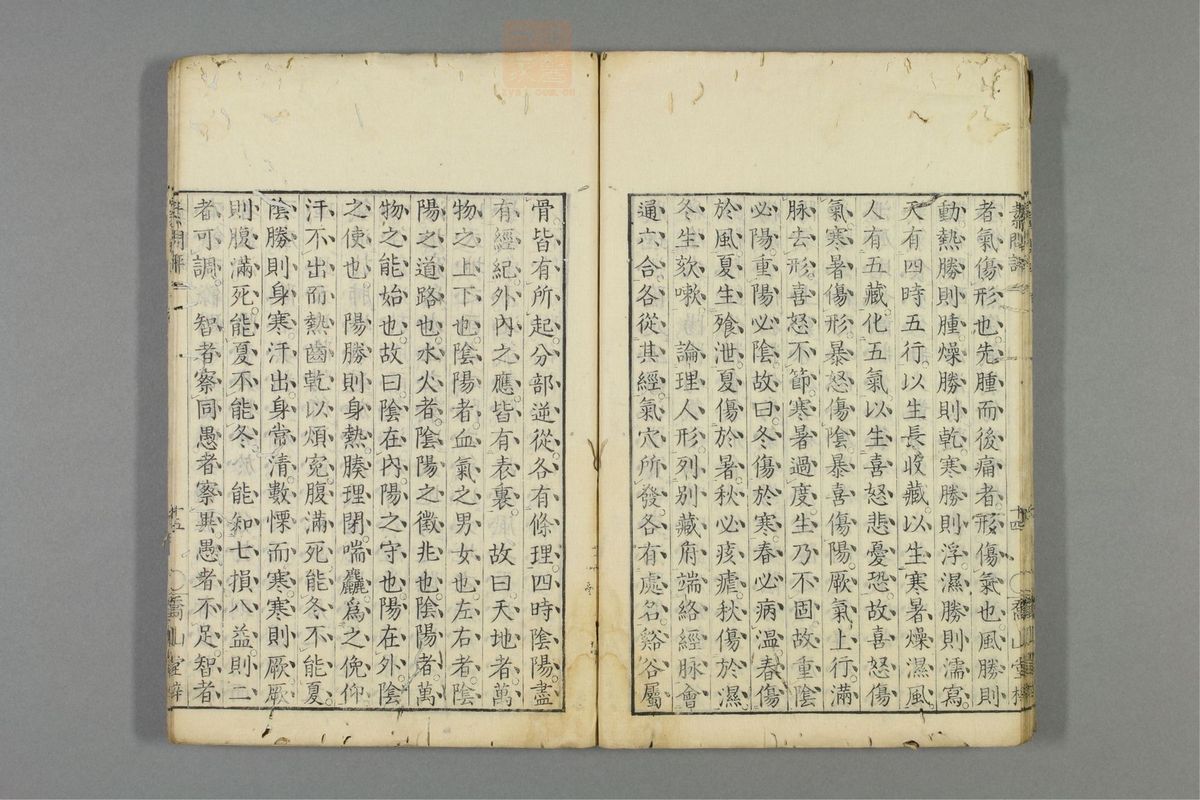 者氣傷形也先腫而後痛者形傷氣也風勝則
動熱勝則腫燥勝則乾寒勝則浮濕勝則濡寫
天有四時五行以生長收藏以生寒暑燥濕風
人有五藏化五氣以生喜怒悲憂恐故喜怒傷
氣寒暑傷形暴怒傷陰暴喜傷陽厥氣上行滿
脉去形喜怒不節寒暑過度生乃不固故重陰
必陽重陽必陰故曰冬傷於寒春必病溫春傷
於風夏生飧泄夏傷於暑秋必痎瘧秋傷於濕
冬生欬嗽論理人形列別藏府端絡經脉會
通六合各從其經氣穴所發各有處名谿谷屬
十四
骨皆有所起分部逆從各有條理四時陰陽盡
有經紀外內之應皆有表裏故曰天地者萬
物之上下也陰陽者血氣之男女也左右者陰
陽之道路也水火者陰陽之徵兆也陰陽者萬
物之能始也故曰陰在內陽之守也陽在外陰
之使也陽勝則身熱腠理閉喘麤爲之俛仰
汗不出而熱齒乾以煩寃腹滿死能冬不能夏
陰勝則身寒汗出身常清數慄而寒寒則厥厥
則腹滿死能夏不能冬能知七損八益則二
者可調智者察同愚者察異愚者不足智者